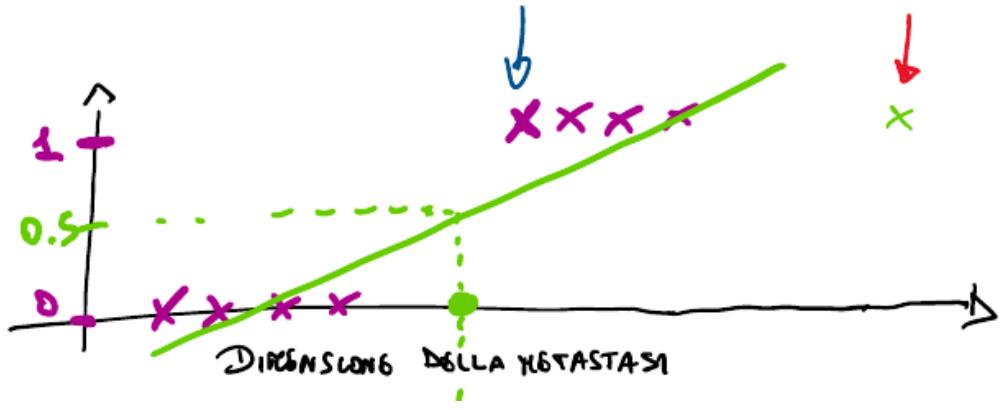 1
0.5
0
DIMENSIONE DELLA METASTASI